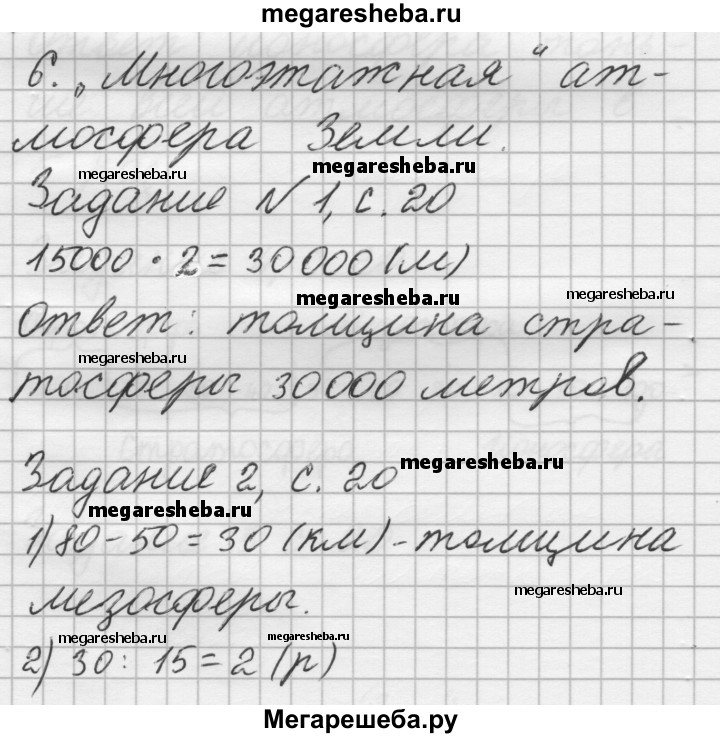 megaresheba.ru
6. „Многоэтажная“ ат-
мосфера Земли.
megaresheba.ru
megaresheba.ru
Задание №1, с. 20
15000 · 2 = 30000 (м)
megaresheba.ru
megaresheba.ru
Ответ: толщина стра-
megaresheba.ru
тосферы 30000 метров.
Задание 2, с. 20
megaresheba.ru
megaresheba.ru
1) 80 - 50 = 30 (км) - толщина
мезосферы.
megaresheba.ru
megaresheba.ru
megaresheba.ru
2) 30 : 15 = 2 (р)
Мегарешеба.ру